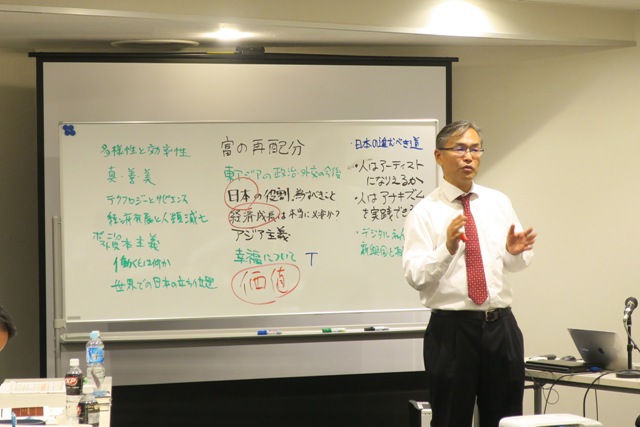 多様性と効率性
真・善美
テクノロジーとサピエンス
経済発展と人類滅亡
ポスト資本主義
働くとは何か
世界での日本の立ち位置
富の再配分
東アジアの政治・外交の今後
日本の役割、為すべきこと
経済成長は本当に必要か?
アジア主義
幸福について T
価値
・日本の進むべき道
・人はアーティスト
になりえるか
・人はアナキズム
を実践でき
・デジタル